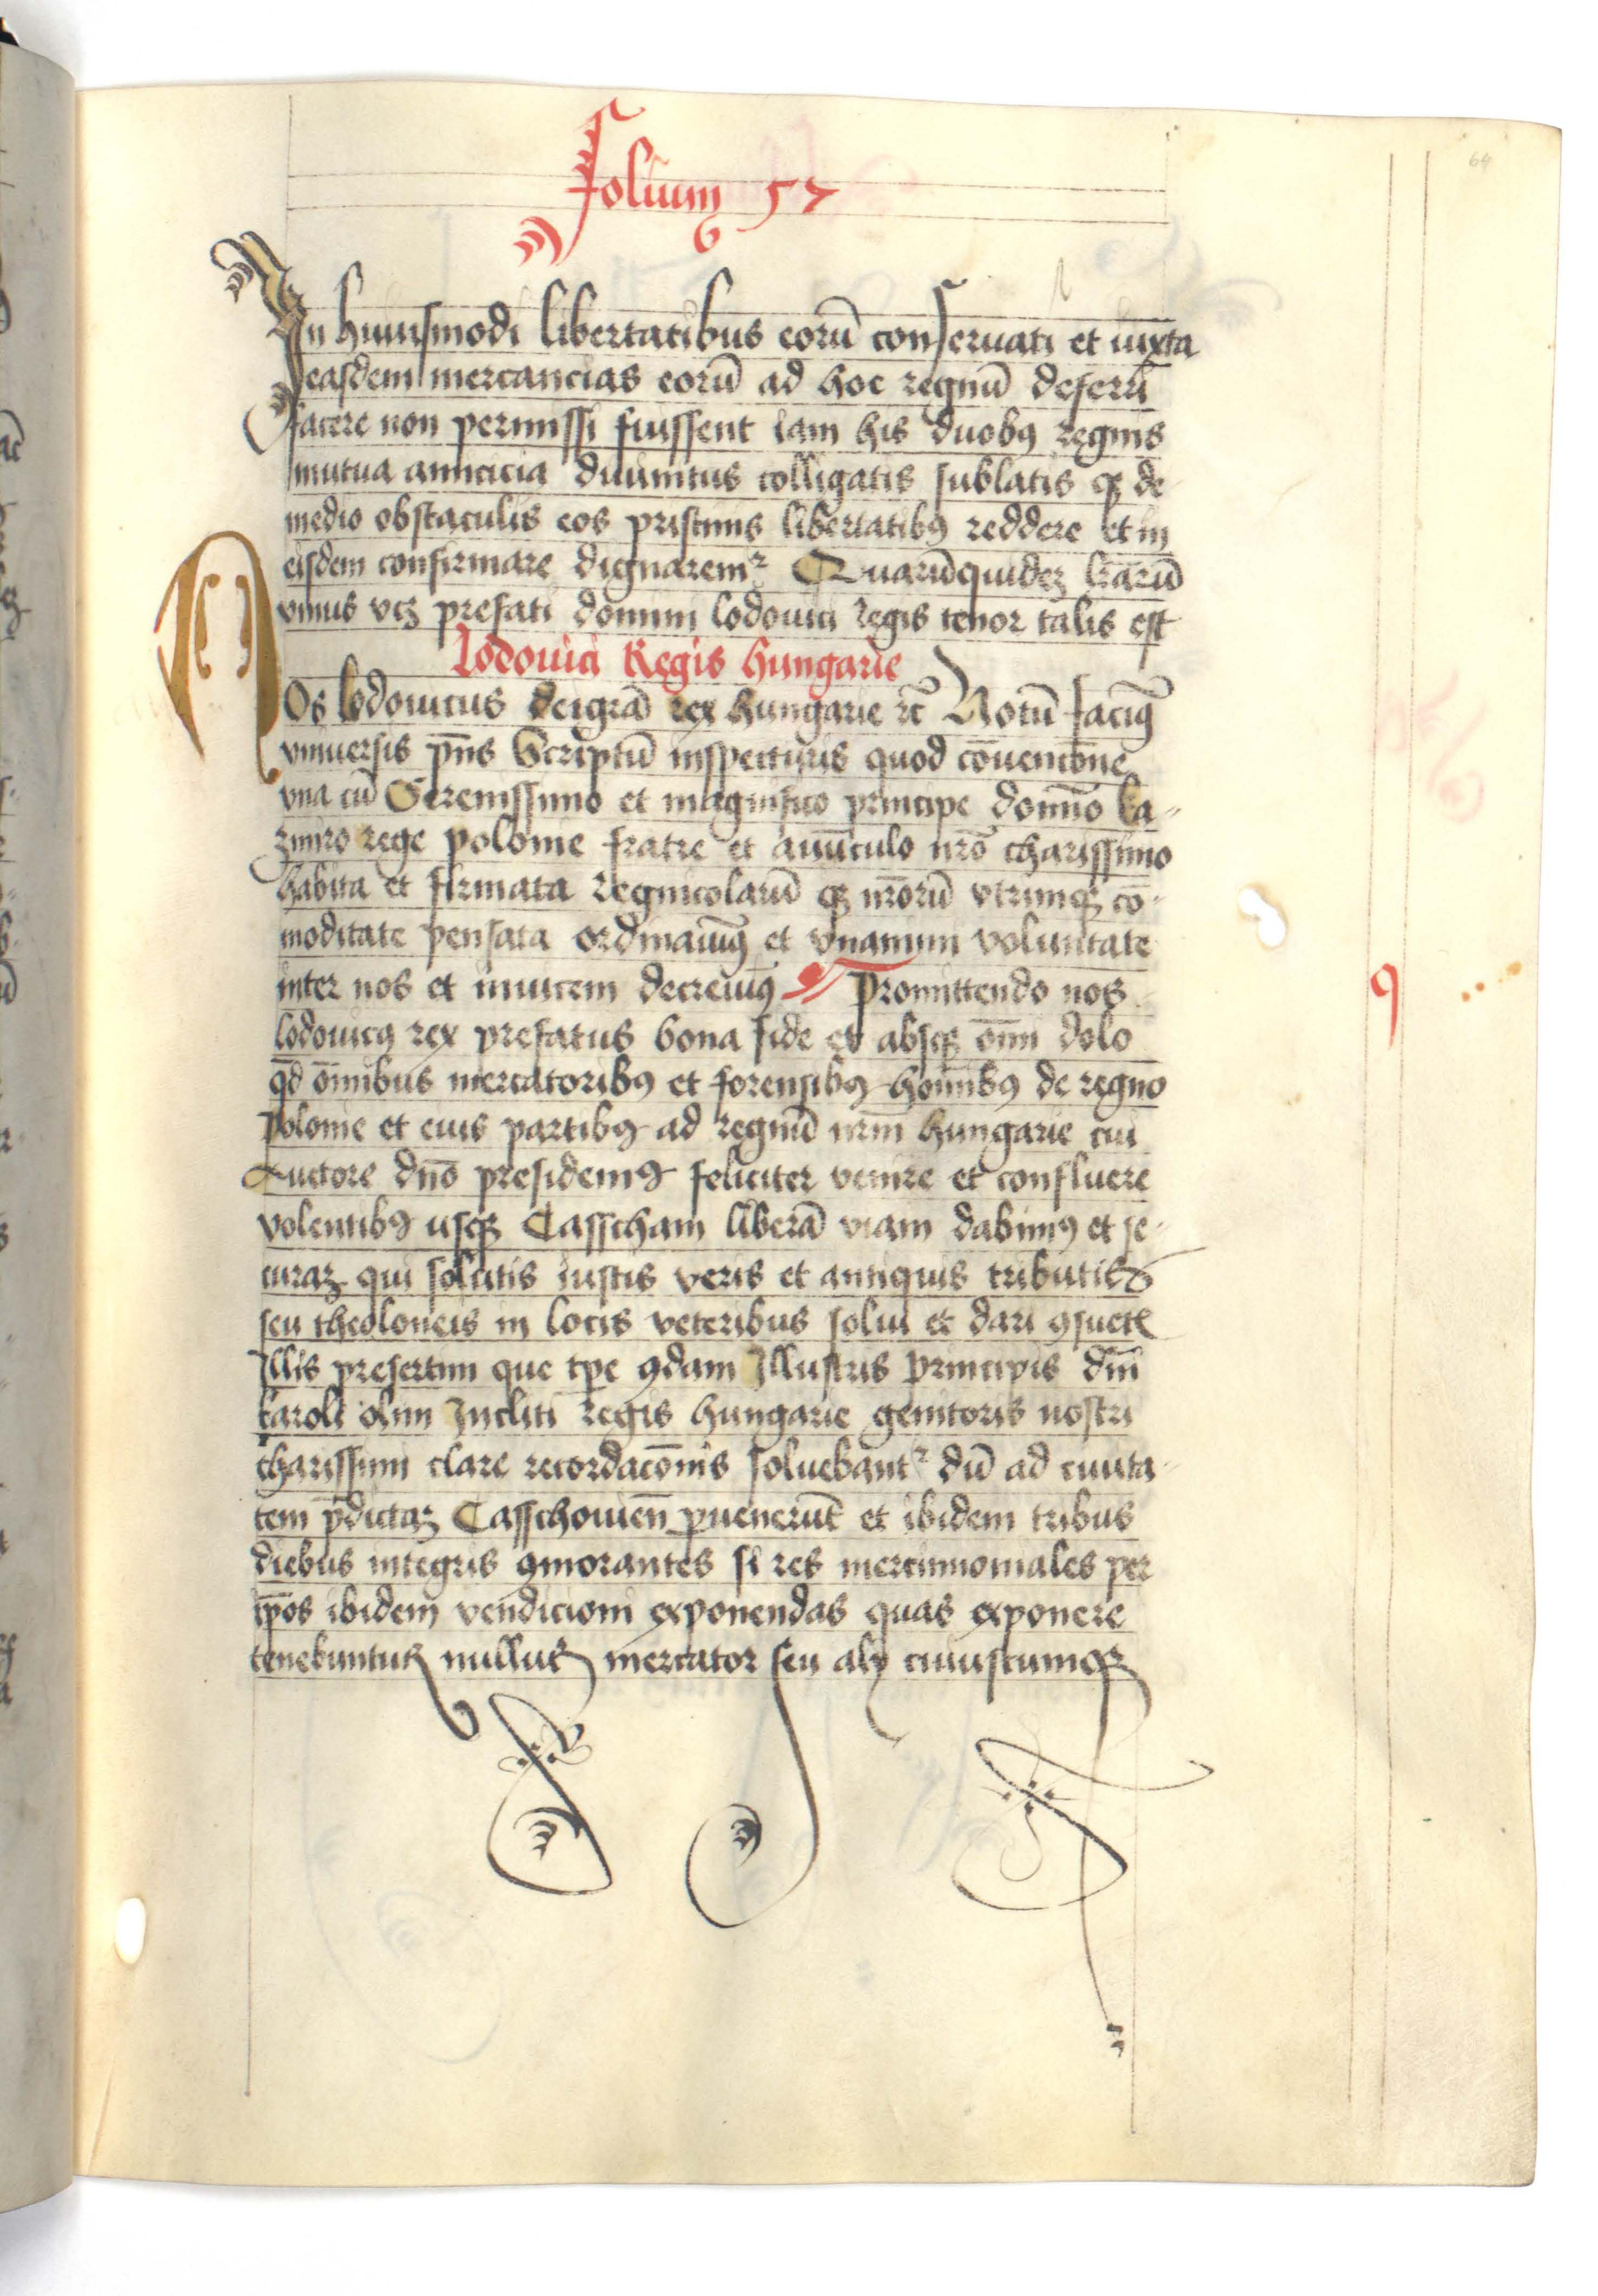 folium 57
In huiusmodi libertatibus eorū conseruati et iuxta
easdem mercancias eorū ad hoc regnū deferri
facere non permissi fuissent iam his duobꝰ regnis
mutua amicicia diuinitus colligatis sublatis qꝫ de
medio obstaculis eos pristinis libertatibꝰ reddere et in
eisdem confirmare dignaremr Quarūquidez lr̄arū
vnius vcꝫ prefati domini lodouici regis tenor talis est
Lodouici Regis hungarie
Nos lodouicus deigr̄a rex hungarie rc̄ Notū facimꝰ
vniuersis p̄ns Scriptū inspecturis quod cōuencōne
vna cū Serenissimo et magnifico principe domīo ka-
zmiro rege polonie fratre et auūculo nr̄o charissimo
habita et firmata regnicolarū qꝫ nr̄orū vtrimqꝫ cō-
moditate pensata ordinauimꝰ et vnanimi voluntate
inter nos et inuicem decreuimꝰ Promittendo nos
lodouicꝰ rex prefatus bona fide et absqꝫ om̄i dolo
qd̄ om̄ibus mercatoribꝰ et forensibꝰ hoīnibꝰ de regno
polonie et eius partibꝰ ad regnū nr̄m hungarie cui
Auctore dn̄o presidemꝰ feliciter venire et confluere
volentibꝰ usqꝫ Casscham liberā viam dabimꝰ et se-
curaꝫ qui solutis iustis veris et antiquis tributis
seu theoloneis in locis veteribus solui et dari ꝯsuetis
Illis presertim que tp̄e ꝯdam Illustris principis dn̄i
karoli olim Incliti regis hungarie genitoris nostri
charissimi clare recordacōnis soluebantr dū ad ciuita-
tem p̄dictaꝫ Casschouien̄ ꝑuenerūt et ibidem tribus
diebus integris ꝯmorantes si res mercimoniales per
ip̄os ibidem vendicioni exponendas quas exponere
tenebuntur nullus mercator seu aly cuiuscumqꝫ
9
64